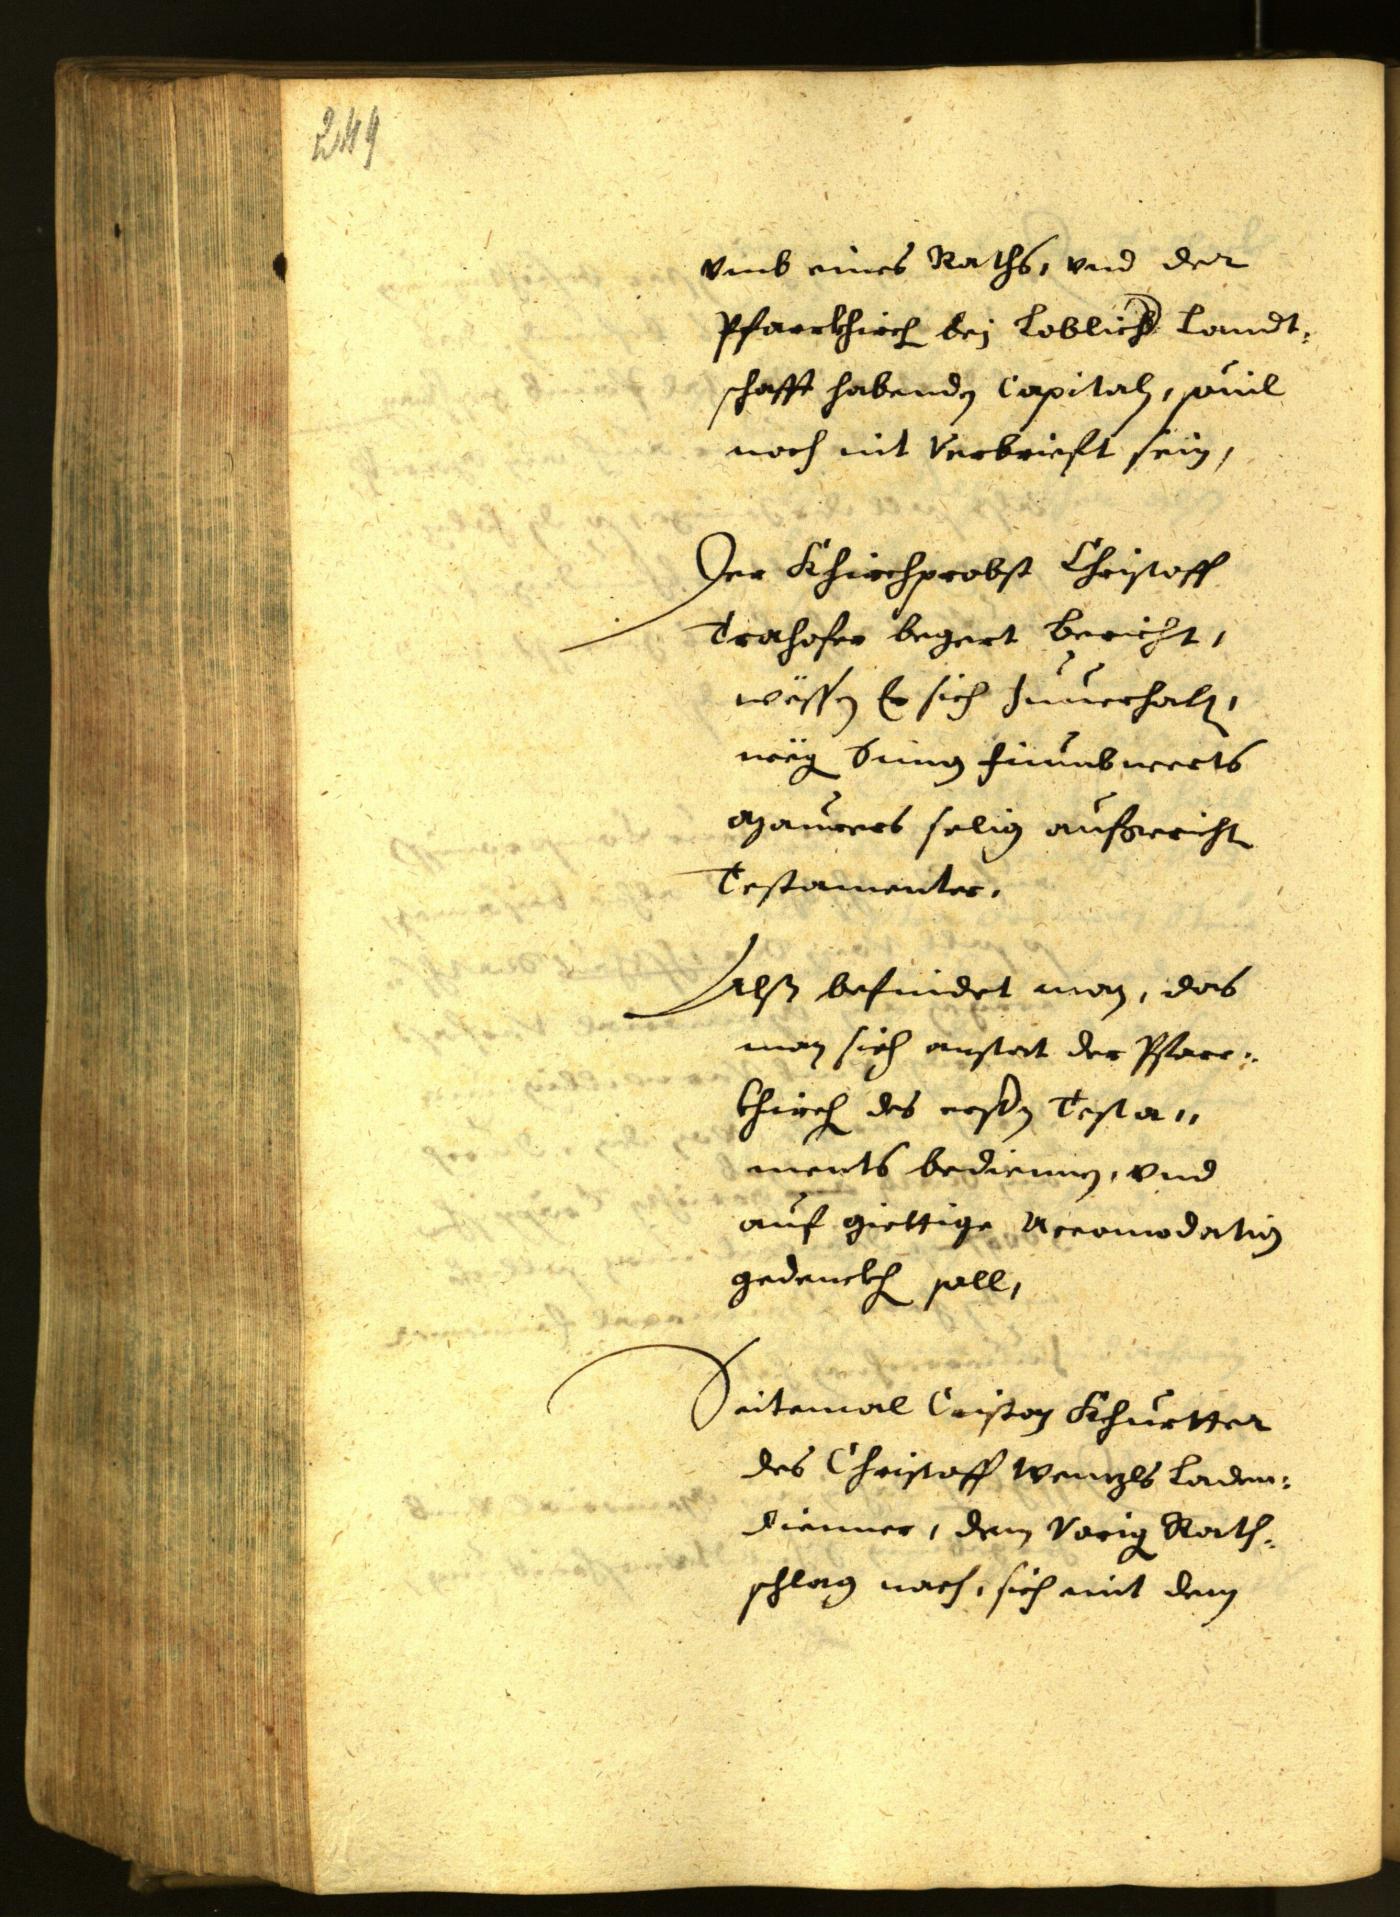 249
vmb eines Raths, vnd der
Pfarrkhirch bei Loblicher Landt-
schafft habenden Capitaln, souil
noch nit Verbrieft sein,
Der Khirchprobst Christoff
Trahofer begert bericht,
wessen Er sich zuuerhalten,
wegen
selig aufgericht
Testamenter.
Alß befindet man, das
man sich anstat der Pfarr-
khirch des ersten Testa-
ments bedienen, vnd
auf giettige Accomodation
gedenckhen soll,
Seitemal Cristan Khurtter
des Christoff Wenzls Laden-
diener, dem Vorigen Rath-
schlag nach, sich mit dem